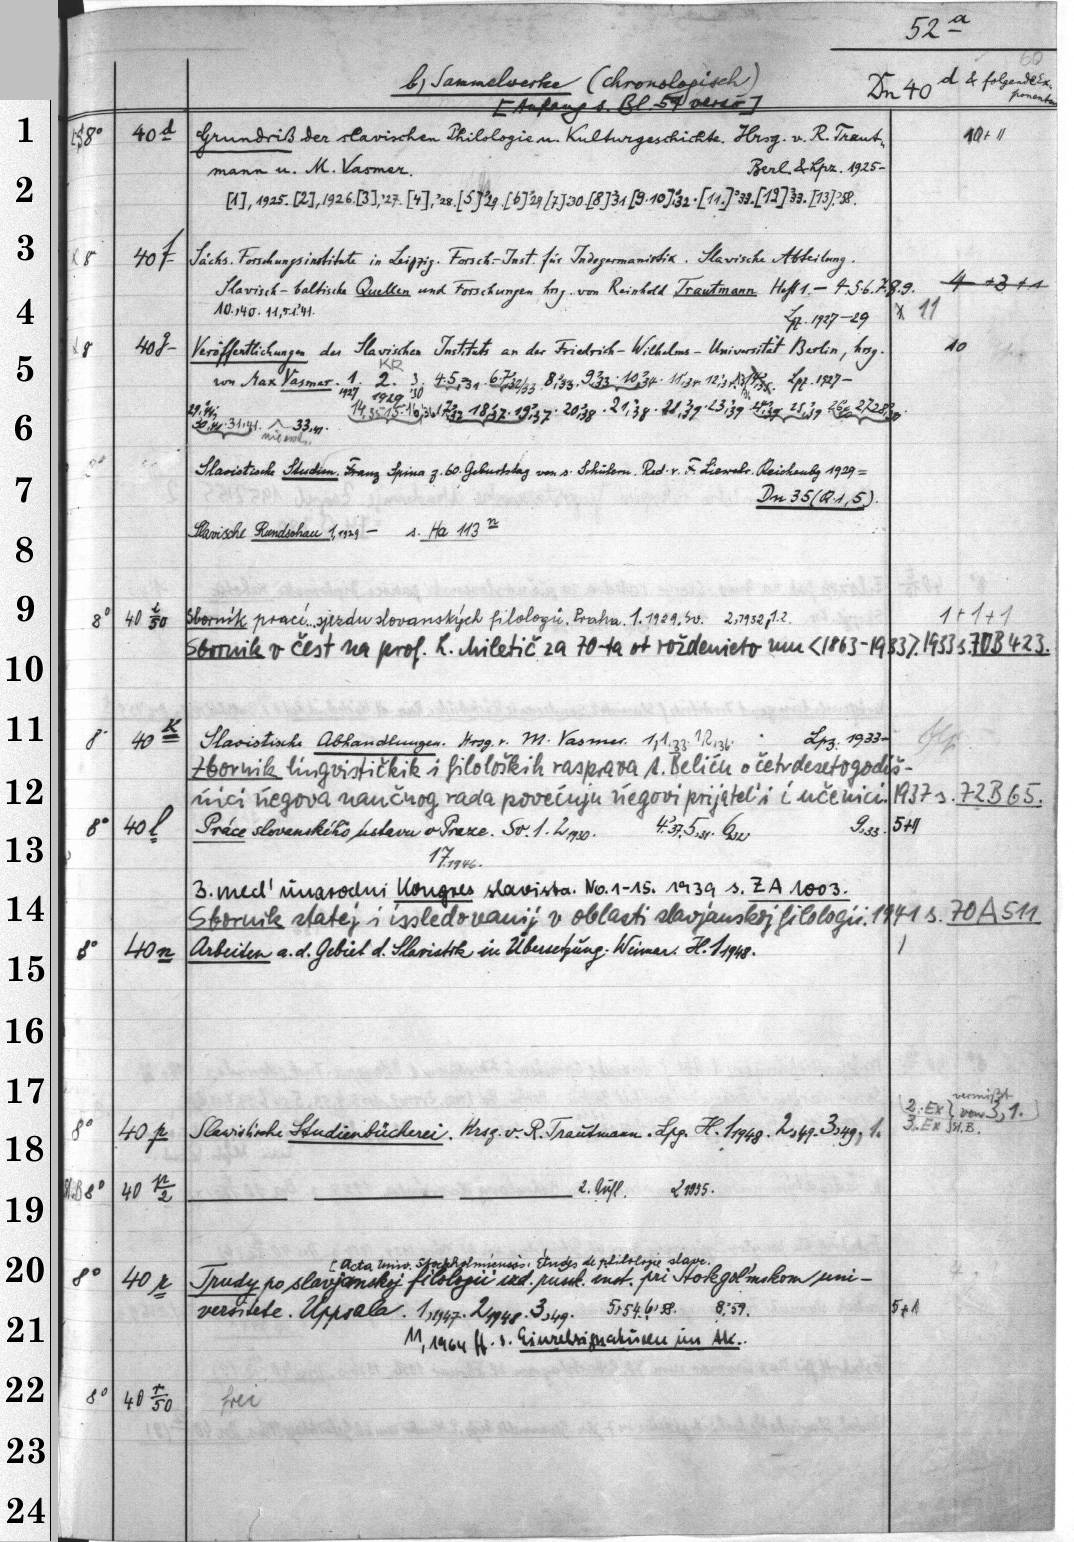 52 a
b) Sammelwerke (chronologisch)
[Anfang s. Bl. 51 verso]
Dn 40 d & folgende Exponenten
1
8° 40 d Grundriß der slavischen Philologie u. Kulturgeschichte. Hrsg. v. R. Traut- 10 + 11
mann u. M. Vasmer. Berl. & Lpz. 1925-
2
[1], 1925. [2], 1926. [3], '27. [4], '28. [5] '29. [6] '29 [7] '30. [8] '31 [9.10] '32. [11.] '33. [12] '33. [13] '38.
3
8 40 f Sächs. Forschungsinstitute in Leipzig. Forsch.-Inst. für Indogermanistik. Slavische Abteilung.
Slavisch-baltische Quellen und Forschungen hrg. von Reinhold Trautmann Heft 1.- 4.5.6.7.8.9. 4 +3 +1
4
10,1940. 11,1941. Lpz. 1927-29 11
8 40 g Veröffentlichungen des Slavischen Instituts an der Friedrich-Wilhelms-Universität Berlin, hrsg. 10
5
von Max Vasmer. 1. 1927 2. 1929 3. '30 4.5,'31 6.7,'32/33 8,'33. 9,'33. 10,'34. Lpz. 1927-
18,'37. 19,'37. 20,'38. 21,'38. 23,'39
6
31,41. 33,
Slavistische Studien. Franz Spina z. 60. Geburtstag von s. Schülern. Red. v. F. Liewehr. Reichenbg 1929 =
7
Dn 35 (R.1,5).
Slavische Rundschau 1,1929 - s. Ha 113 n
8
9
8° 40 i/50 Sborník prací.. sjezdu slovanských filologů. Praha. 1. 1929. Sv. 2,1932,1.2. 1+1+1
Sbornik v čest na prof. L. Miletič za 70-ta ot roždenieto mu <1863-1933>. 1933 s. 70B423.
10
11
8° 40 K Slavistische Abhandlungen. Hrsg. v. M. Vasmer. 1,1,33. 1,2,'36. Lpz. 1933-
Zbornik lingvističkih i filoloških rasprava A. Beliću o četrdesetogodiš-
12
ńici ńegova naučnog rada povećuju ńegovi prijatel'i i učenici. 1937 s. 72B65.
8° 40 l Práce slovanského ústavu v Praze. Sv. 1. 2,1930. 4,'37. 5,'31. 6,'32 9,'33. 5+11
13
17,1946.
3. međunarodni Kongres slavista. No. 1-15. 1939 s. ZA 1003.
14
Sbornik statej i issledovanij v oblasti slavjanskoj filologii. 1941 s. 70A511
8° 40 n Arbeiten a. d. Gebiet d. Slavistik in Übersetzung. Weimar. H. 1,1948. 1
15
16
17
2. Ex vermißt
3. Ex von 3, 1.
18
8° 40 p Slavistische Studienbücherei. Hrsg. v. R. Trautmann. Lpg. H. 1,1948. 2,49. 3,49, 1.
8° 40 p/2 2. Aufl. 2 1955.
19
20
[Acta Univ. Stockholmiensis. Études de philologie slave.
8° 40 r Trudy po slavjanskoj filologii izd. russk. inst. pri Stokgol'mskom uni-
versitete. Uppsala. 1,1947. 2,1948. 3,49. 5,'54. 6,'58. 8,'59. 5+1
21
11, 1964 ff. s. Einzelsignaturen im AK.
22
8° 40 r/50 frei
23
24